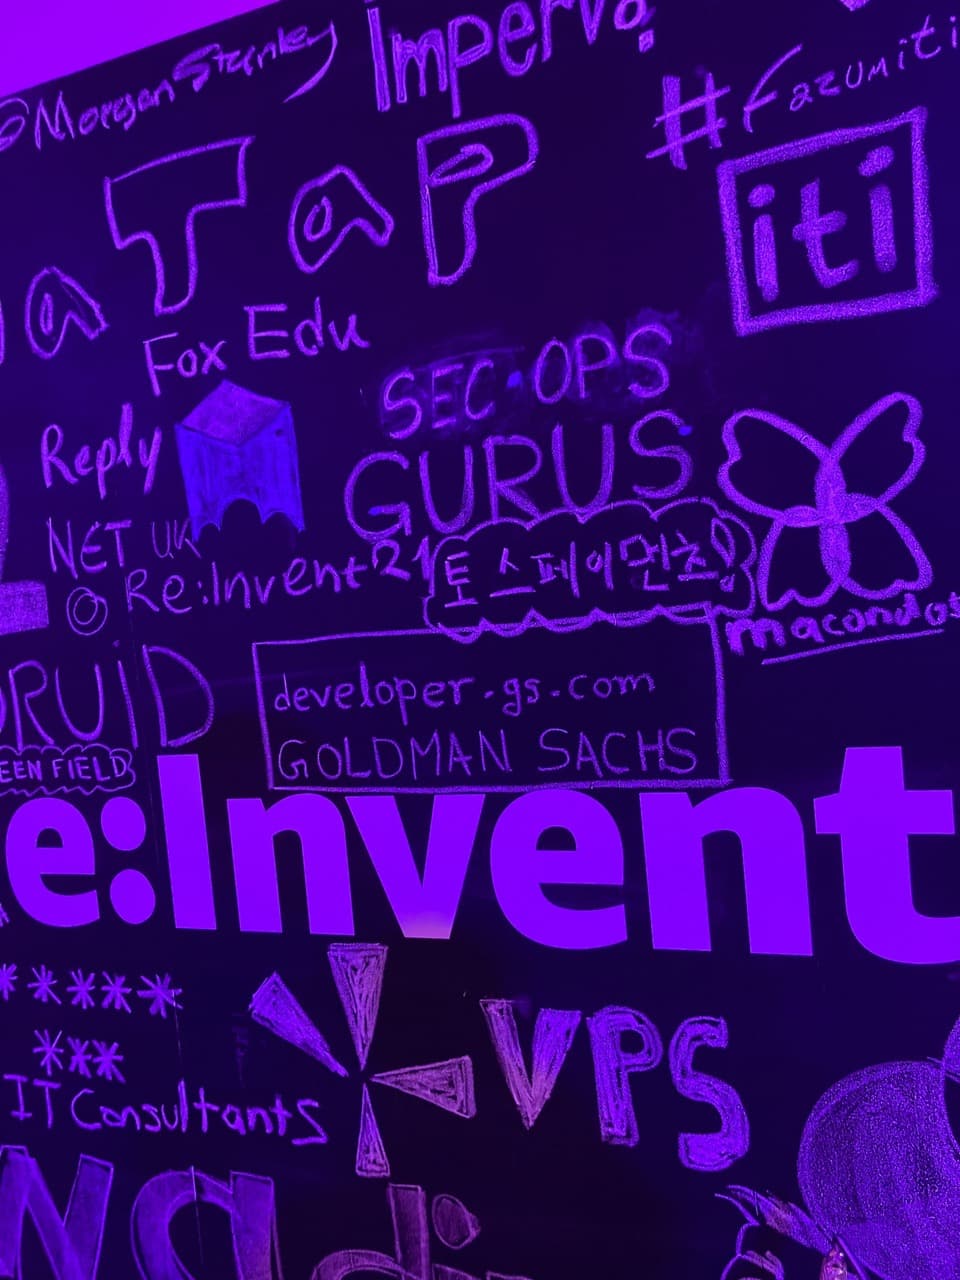 @Morgan Stanley
Imperva
#Fazumiti
aTaP
iti
Fox Edu
SEC OPS
GURUS
Reply
NET UK
Re:Invent '21
토스페이먼츠!
macondo
DRUiD
EEN FIELD
developer.gs.com
GOLDMAN SACHS
e:Invent
*****
***
IT Consultants
VPS